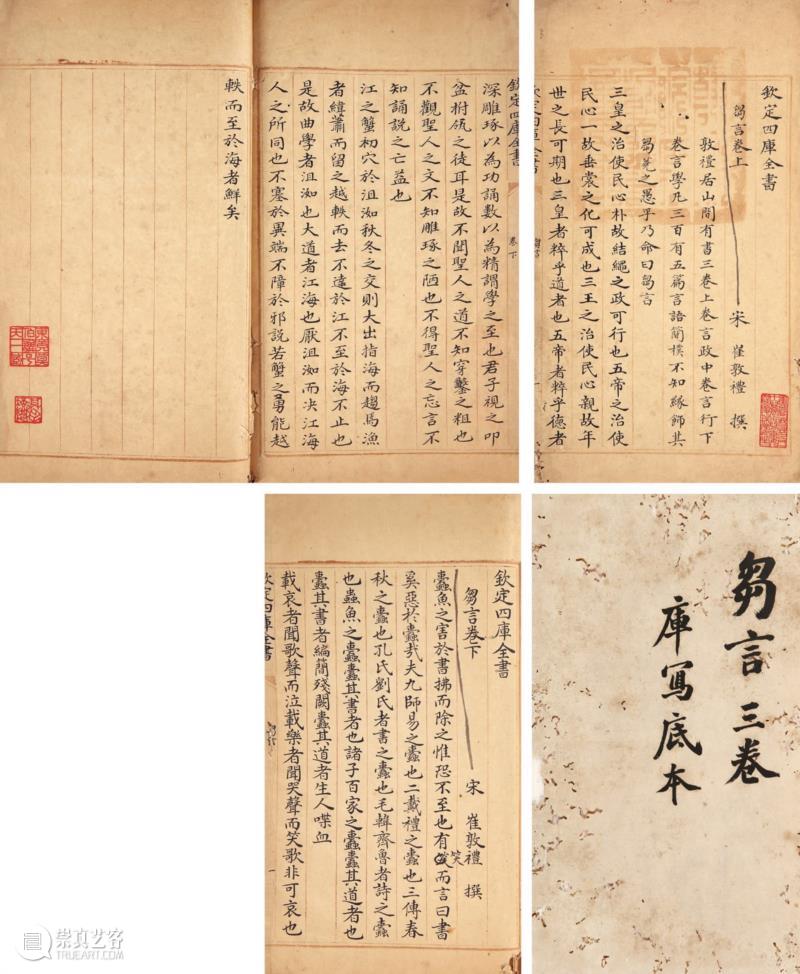 欽定四庫全書
芻言卷上
宋 崔敦禮 撰
敦禮居山間有書三卷上卷言政中卷言行下
卷言學凡三百有五篇言語簡樸不知緣飾其
芻蕘之愚乎乃命曰芻言
三皇之治使民心朴故結繩之政可行也五帝之治使
民心一故垂裳之化可成也三王之治使民心親故年
世之長可期也三皇者粹乎道者也五帝者粹乎德者
欽定四庫全書
欽定四庫全書
卷下
深雕琢以為功誦數以為精謂學之至也君子視之叩
盆拊瓴之徒耳是故不聞聖人之道不知穿鑿之粗也
不觀聖人之文不知雕琢之陋也不得聖人之忘言不
知誦說之亡益也
江之蟹初穴於沮洳秋冬之交則大出指海而趨焉漁
者緯蕭而留之越軼而去不遠於江不至於海不止也
是故曲學者沮洳也大道者江海也厭沮洳而决江海
人之所同也不塞於異端不障於邪說若蟹之勇能越
軼而至於海者鮮矣
芻言三卷
庫寫底本
欽定四庫全書
芻言卷下
宋 崔敦禮 撰
蠹魚之害於書拂而除之惟恐不至也有笑而言曰書
奚惡於蠹哉夫九師易之蠹也二戴禮之蠹也三傳春
秋之蠹也孔氏劉氏者書之蠹也毛韓齊魯者詩之蠹
也蟲魚之蠹蠹其書者也諸子百家之蠹蠹其道者也
蠹其書者編簡殘闕蠹其道者生人喋血
載哀者聞歌聲而泣載樂者聞哭聲而笑歌非可哀也
欽定四庫全書
崇真艺客
WWW.TRUEART.COM